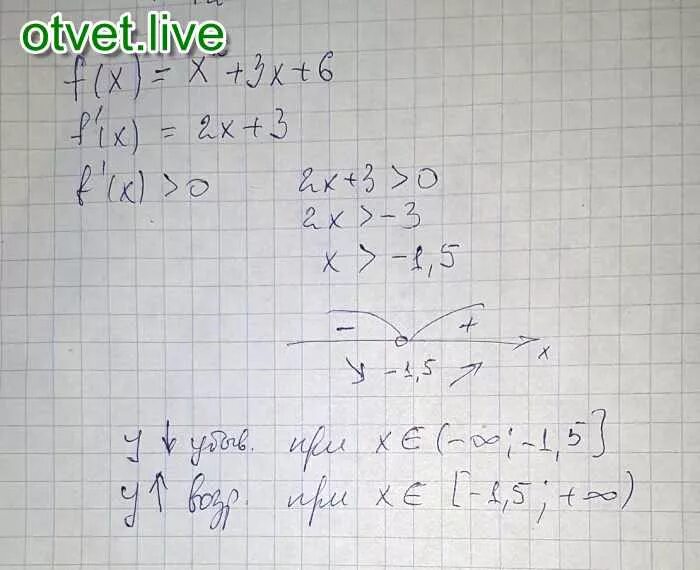 otvet.live
f(x) = x² + 3x + 6
f'(x) = 2x + 3
f'(x) > 0 2x + 3 > 0
2x > -3
x > -1,5
- +
-1,5 x
y ↓ убыв. при x ∈ (-∞; -1,5]
y ↑ возр. при x ∈ [-1,5; +∞)